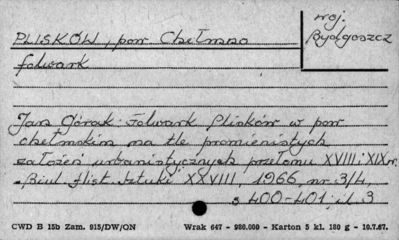 PLISKÓW, pow Chełmno
woj.
Bydgoszcz
folwark
Jan Górak: Folwark Plisków w pow
chełmskim na tle promienistych
założeń urbanistycznych przełomu XVIII i XIX w.
"Biul. Hist. Sztuki" XXVIII, 1966, nr 3/4,
s 400-401; il. 3
CWD B 15b Zam. 915/DW/QN Wrak 647 - 980.000 - Karton 5 kl. 180 g - 10.7.67.